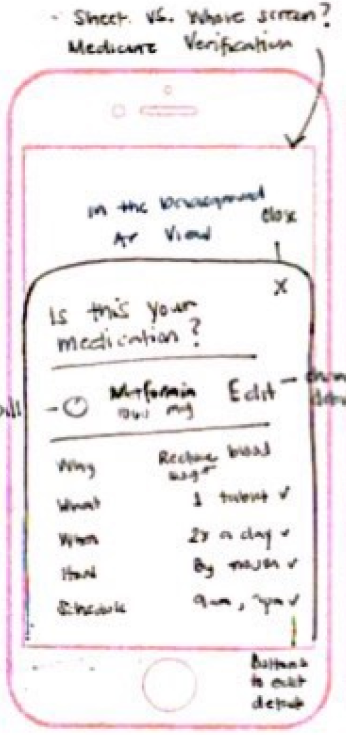 - Sheet vs. Whole screen?
Medicine Verification
in the background
AR View
close
X
Is this your
medication?
pill
Metformin
mg
Edit
Why
Reduce blood
sugar
What
1 tablet ✓
When
2x a day ✓
How
By mouth ✓
Schedule
9am, 9pm ✓
Buttons
to edit
details